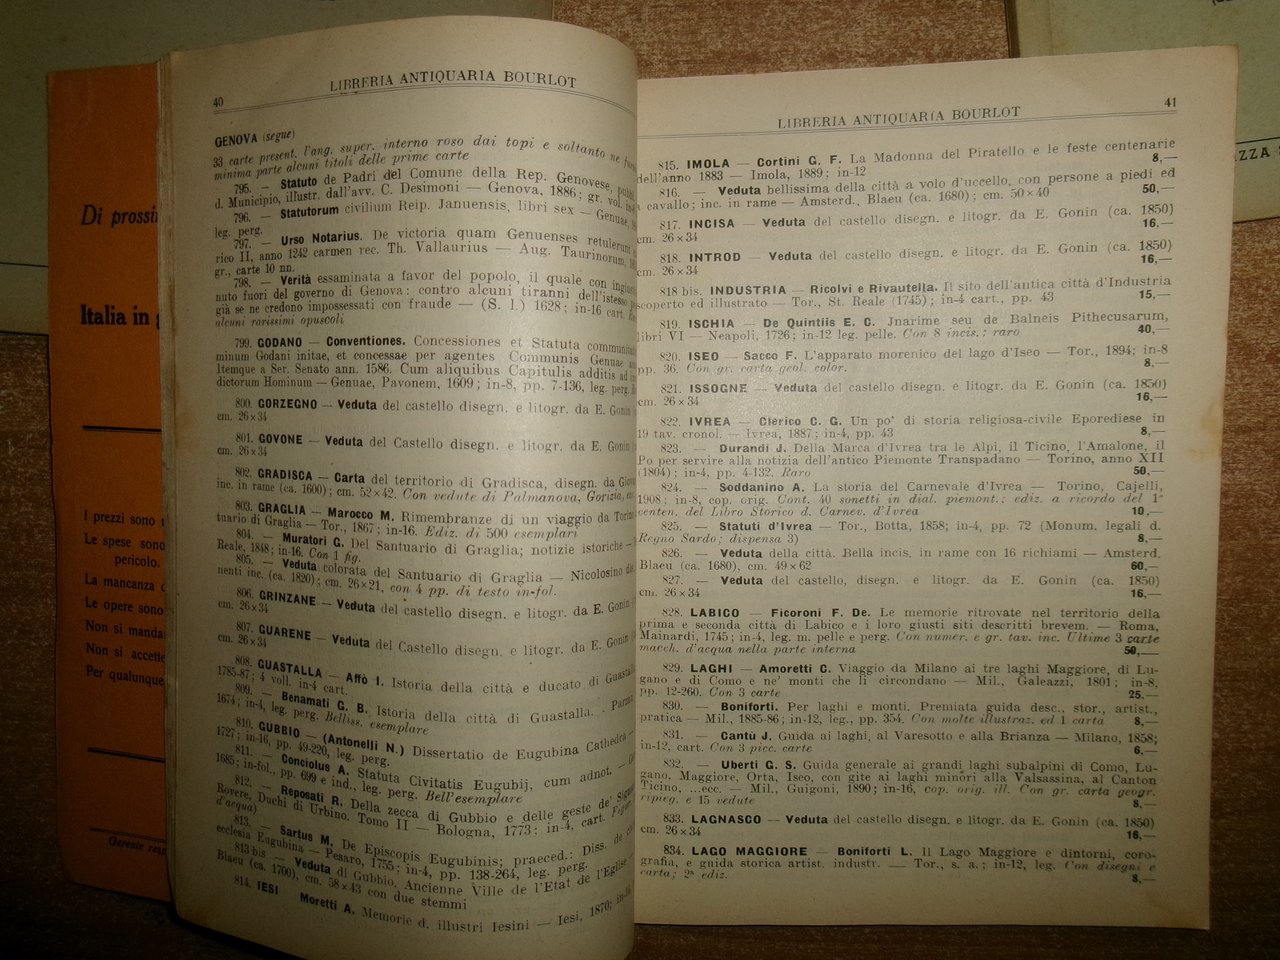 Di prossi
Italia in
I prezzi sono
Le spese sono
pericolo.
La mancanza d
Le opere sono
Non si manda
Non si accette
Per qualunque
Gerente resp
40
LIBRERIA ANTIQUARIA BOURLOT
GENOVA (segue)
33 carte present. l'ang. super. interno roso dai topi e soltanto ne
minima parte alcuni titoli delle prime carte
795. — Statuto de Padri del Comune della Rep. Genovese,
d. Municipio, illustr. dall'avv. C. Desimoni — Genova, 1886; gr. vol.
796. — Statutorum civilium Reip. Januensis, libri sex — Genuae,
leg. perg.
797. — Urso Notarius. De victoria quam Genuenses retulerunt
rico II, anno 1242 carmen rec. Th. Vallaurius — Aug. Taurinorum,
gr., carte 10 nn.
798. — Verità essaminata a favor del popolo, il quale con
nuto fuori del governo di Genova: contro alcuni tiranni dell'istesso
già se ne credono impossessati con fraude — (S. l.) 1628; in-16 cart.
alcuni rarissimi opuscoli
799. GODANO — Conventiones. Concessiones et Statuta
minum Godani initae, et concessae per agentes Communis Genuae
Itemque a Ser. Senato ann. 1586. Cum aliquibus Capitulis additis ad
dictorum Hominum — Genuae, Pavonem, 1609; in-8, pp. 7-136, leg. perg.
800. GORZEGNO — Veduta del castello disegn. e litogr. da E. Gonin
cm. 26×34
801. GOVONE — Veduta del Castello disegn. e litogr. da E. Gonin
cm. 26×34
802. GRADISCA — Carta del territorio di Gradisca, disegn. da
inc. in rame (ca. 1600); cm. 52×42. Con vedute di Palmanova, Gorizia,
803. GRAGLIA — Marocco M. Rimembranze di un viaggio da
tuario di Graglia — Tor., 1867; in-16. Ediz. di 500 esemplari
804. — Muratori G. Del Santuario di Graglia; notizie istoriche —
Reale, 1848; in-16. Con 1 fig.
805. — Veduta colorata del Santuario di Graglia — Nicolosino
nenti inc. (ca. 1820); cm. 26×21, con 4 pp. di testo in-fol.
806. GRINZANE — Veduta del castello disegn. e litogr. da E. Gonin
cm. 26×34
807. GUARENE — Veduta del Castello disegn. e litogr. da E. Gonin
cm. 26×34
808. GUASTALLA — Affò I. Istoria della città e ducato di Guastalla
1785-87; 4 voll. in-4 cart.
809. — Benamati G. B. Istoria della città di Guastalla. - Parma
1674; in-4, leg. perg. Belliss. esemplare
810. GUBBIO — (Antonelli N.) Dissertatio de Eugubina
1727; in-16, pp. 49-220, leg. perg.
811. — Conciolus A. Statuta Civitatis Eugubij, cum adnot. —
1685; in-fol., pp. 699 e ind., leg. perg. Bell'esemplare
812. — Reposati R. Della zecca di Gubbio e delle geste de'
Rovere, Duchi di Urbino. Tomo II — Bologna, 1773; in-4, cart.
d'acqua)
813. — Sartus M. De Episcopis Eugubinis; praeced.: Diss. de
ecclesia Eugubina — Pesaro, 1755; in-4, pp. 138-264, leg. perg.
813 bis — Veduta di Gubbio. Ancienne Ville de l'Etat de l'Eglise
Blaeu (ca. 1700), cm. 58×43 con due stemmi
814. IESI Moretti A. Memorie d. illustri Iesini — Iesi, 1870;
LIBRERIA ANTIQUARIA BOURLOT
41
815. IMOLA — Cortini G. F. La Madonna del Piratello e le feste centenarie
dell'anno 1883 — Imola, 1889; in-12 8,—
816. — Veduta bellissima della città a volo d'uccello, con persone a piedi ed
a cavallo; inc. in rame — Amsterd., Blaeu (ca. 1680); cm. 50×40 50,—
817. INCISA — Veduta del castello disegn. e litogr. da E. Gonin (ca. 1850)
cm. 26×34 16,—
818. INTROD — Veduta del castello disegn. e litogr. da E. Gonin (ca. 1850)
cm. 26×34 16,—
818 bis. INDUSTRIA — Ricolvi e Rivautella. Il sito dell'antica città d'Industria
scoperto ed illustrato — Tor., St. Reale (1745); in-4 cart., pp. 43 15,—
819. ISCHIA — De Quintiis E. C. Jnarime seu de Balneis Pithecusarum,
libri VI — Neapoli, 1726; in-12 leg. pelle. Con 8 incis.; raro 40,—
820. ISEO — Sacco F. L'apparato morenico del lago d'Iseo — Tor., 1894; in-8
pp. 36. Con gr. carta geol. color. 8,—
821. ISSOGNE — Veduta del castello disegn. e litogr. da E. Gonin (ca. 1850)
cm. 26×34 16,—
822. IVREA — Clerico C. G. Un po' di storia religiosa-civile Eporediese in
19 tav. cronol. — Ivrea, 1887; in-4, pp. 43 8,—
823. — Durandi J. Della Marca d'Ivrea tra le Alpi, il Ticino, l'Amalone, il
Po per servire alla notizia dell'antico Piemonte Transpadano — Torino, anno XII
(1804); in-4, pp. 4-132. Raro 50,—
824. — Soddanino A. La storia del Carnevale d'Ivrea — Torino, Cajelli,
1908; in-8, cop. orig. Cont. 40 sonetti in dial. piemont.; ediz. a ricordo del 1°
centen. del Libro Storico d. Carnev. d'Ivrea 10,—
825. — Statuti d'Ivrea — Tor., Botta, 1858; in-4, pp. 72 (Monum. legali d.
Regno Sardo; dispensa 3) 8,—
826. — Veduta della città. Bella incis. in rame con 16 richiami — Amsterd.
Blaeu (ca. 1680), cm. 49×62 60,—
827. — Veduta del castello, disegn. e litogr. da E. Gonin (ca. 1850)
cm. 26×34 16,—
828. LABICO — Ficoroni F. De. Le memorie ritrovate nel territorio della
prima e seconda città di Labico e i loro giusti siti descritti brevem. — Roma,
Mainardi, 1745; in-4, leg. m. pelle e perg. Con numer. e gr. tav. inc. Ultime 3 carte
macch. d'acqua nella parte interna 50,—
829. LAGHI — Amoretti C. Viaggio da Milano ai tre laghi Maggiore, di Lu-
gano e di Como e ne' monti che li circondano — Mil., Galeazzi, 1801; in-8,
pp. 12-260. Con 3 carte 25,—
830. — Boniforti. Per laghi e monti. Premiata guida desc., stor., artist.,
pratica — Mil., 1885-86; in-12, leg., pp. 354. Con molte illustraz. ed 1 carta 8,—
831. — Cantù J. Guida ai laghi, al Varesotto e alla Brianza — Milano, 1858;
in-12, cart. Con 3 picc. carte 6,—
832. — Uberti G. S. Guida generale ai grandi laghi subalpini di Como, Lu-
gano, Maggiore, Orta, Iseo, con gite ai laghi minori alla Valsassina, al Canton
Ticino, ...ecc. — Mil., Guigoni, 1890; in-16, cop. orig. ill. Con gr. carta geogr.
ripieg. e 15 vedute 8,—
833. LAGNASCO — Veduta del castello disegn. e litogr. da E. Gonin (ca. 1850)
cm. 26×34 16,—
834. LAGO MAGGIORE — Boniforti L. Il Lago Maggiore e dintorni, coro-
grafia, e guida storica artist. industr. — Tor., s. a.; in-12, leg. Con disegni e
carta; 2ª ediz. 8,—